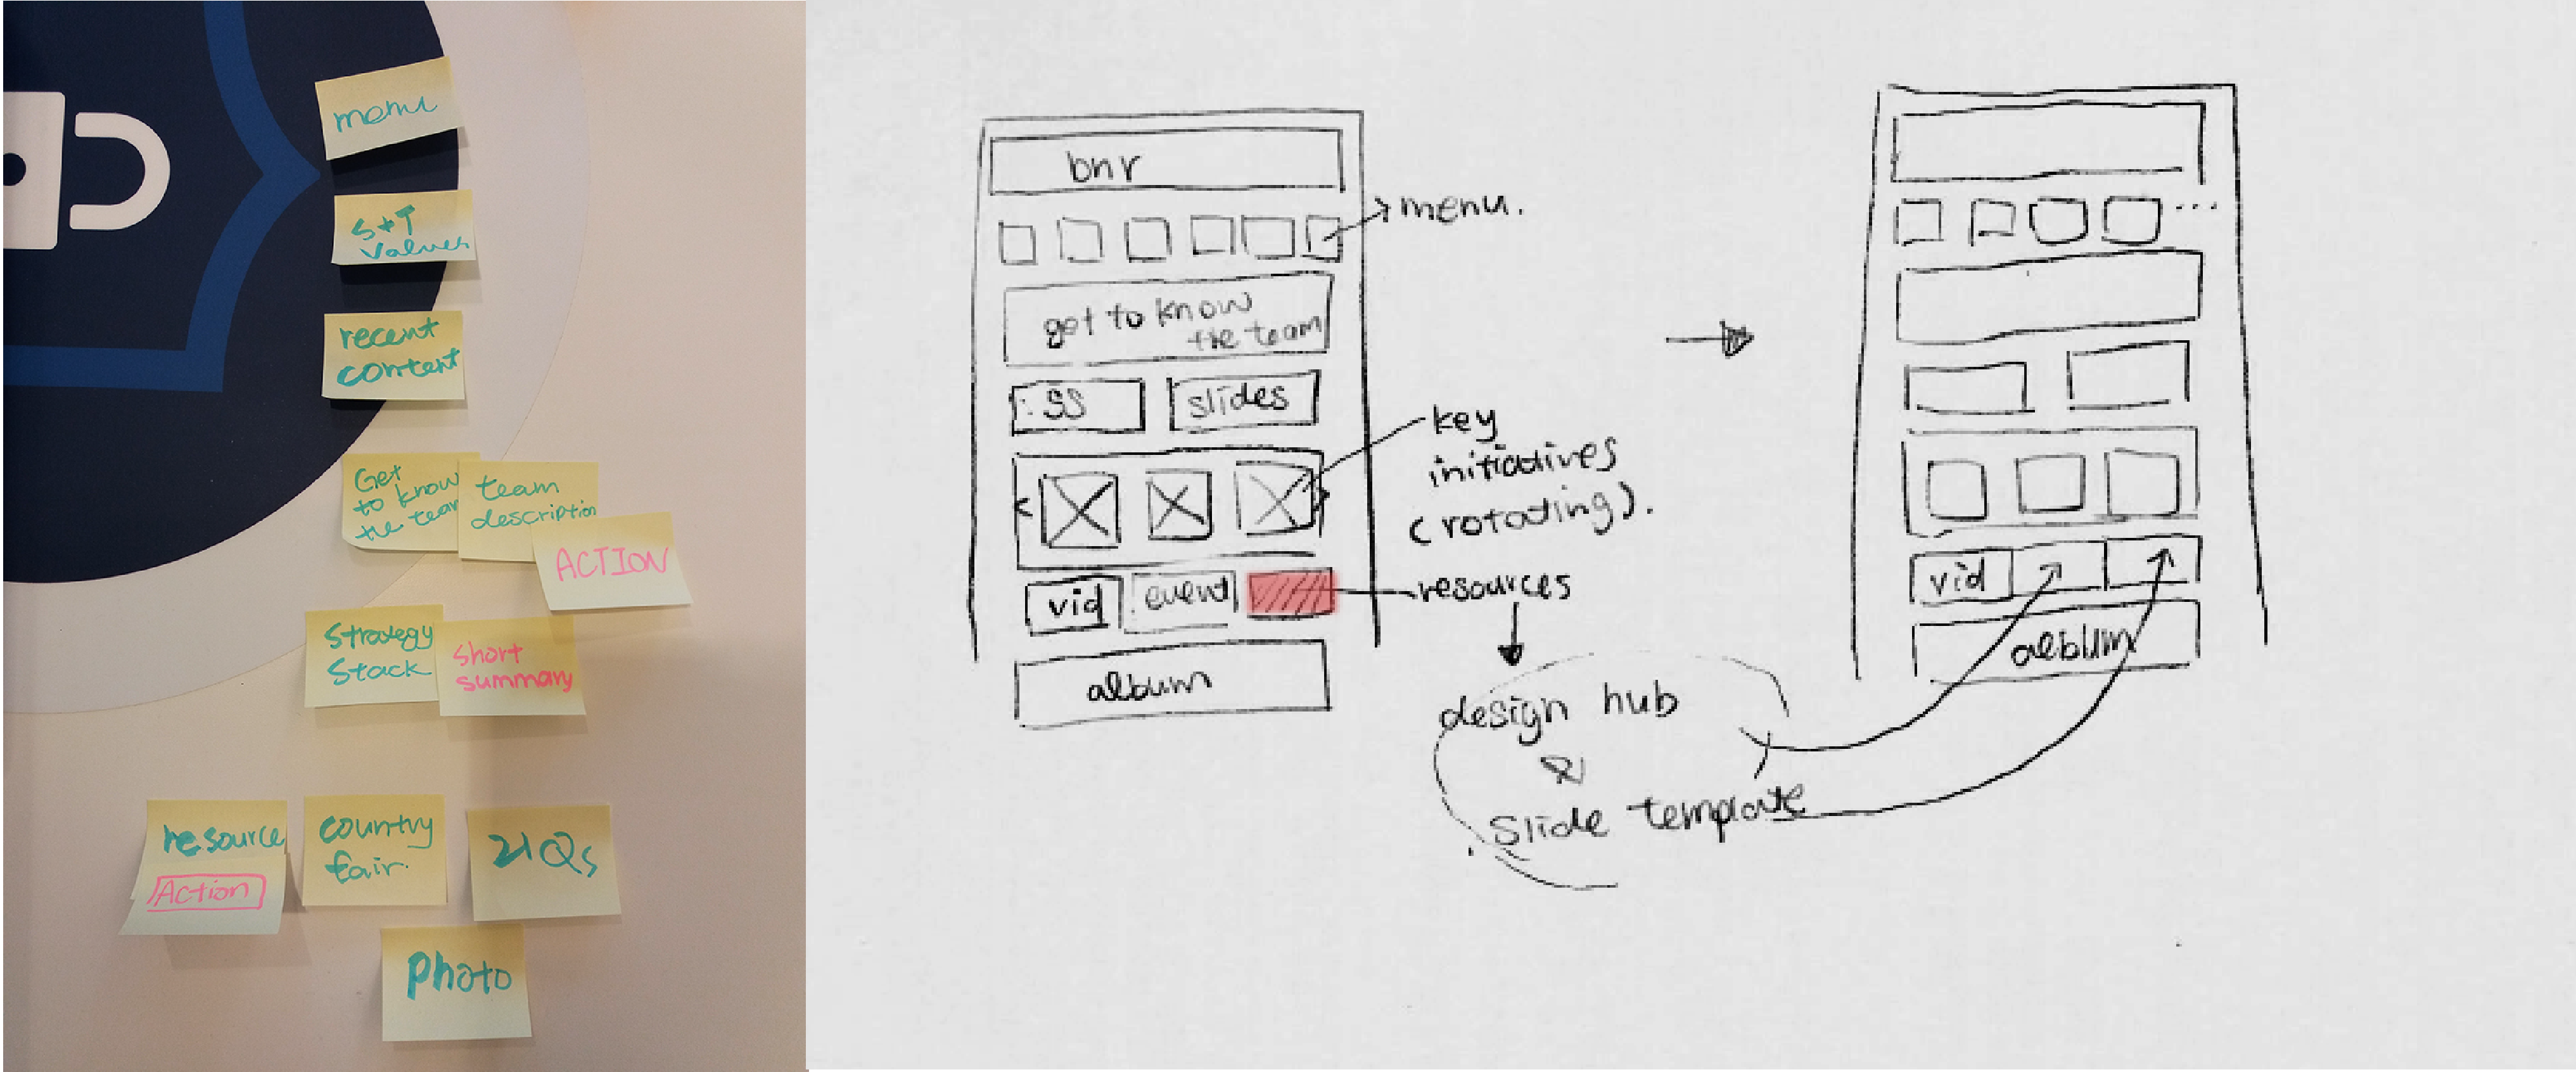 menu
S+T
values
recent
content
Get
to know
the team
team
description
ACTION
Strategy
Stack
short
summary
resource
Action
country
fair.
21Qs
photo
bnr
menu.
get to know
the team
SS
slides
key
initiatives
(rotating).
vid
event
resources
album
design hub
&
slide template
...
vid
album